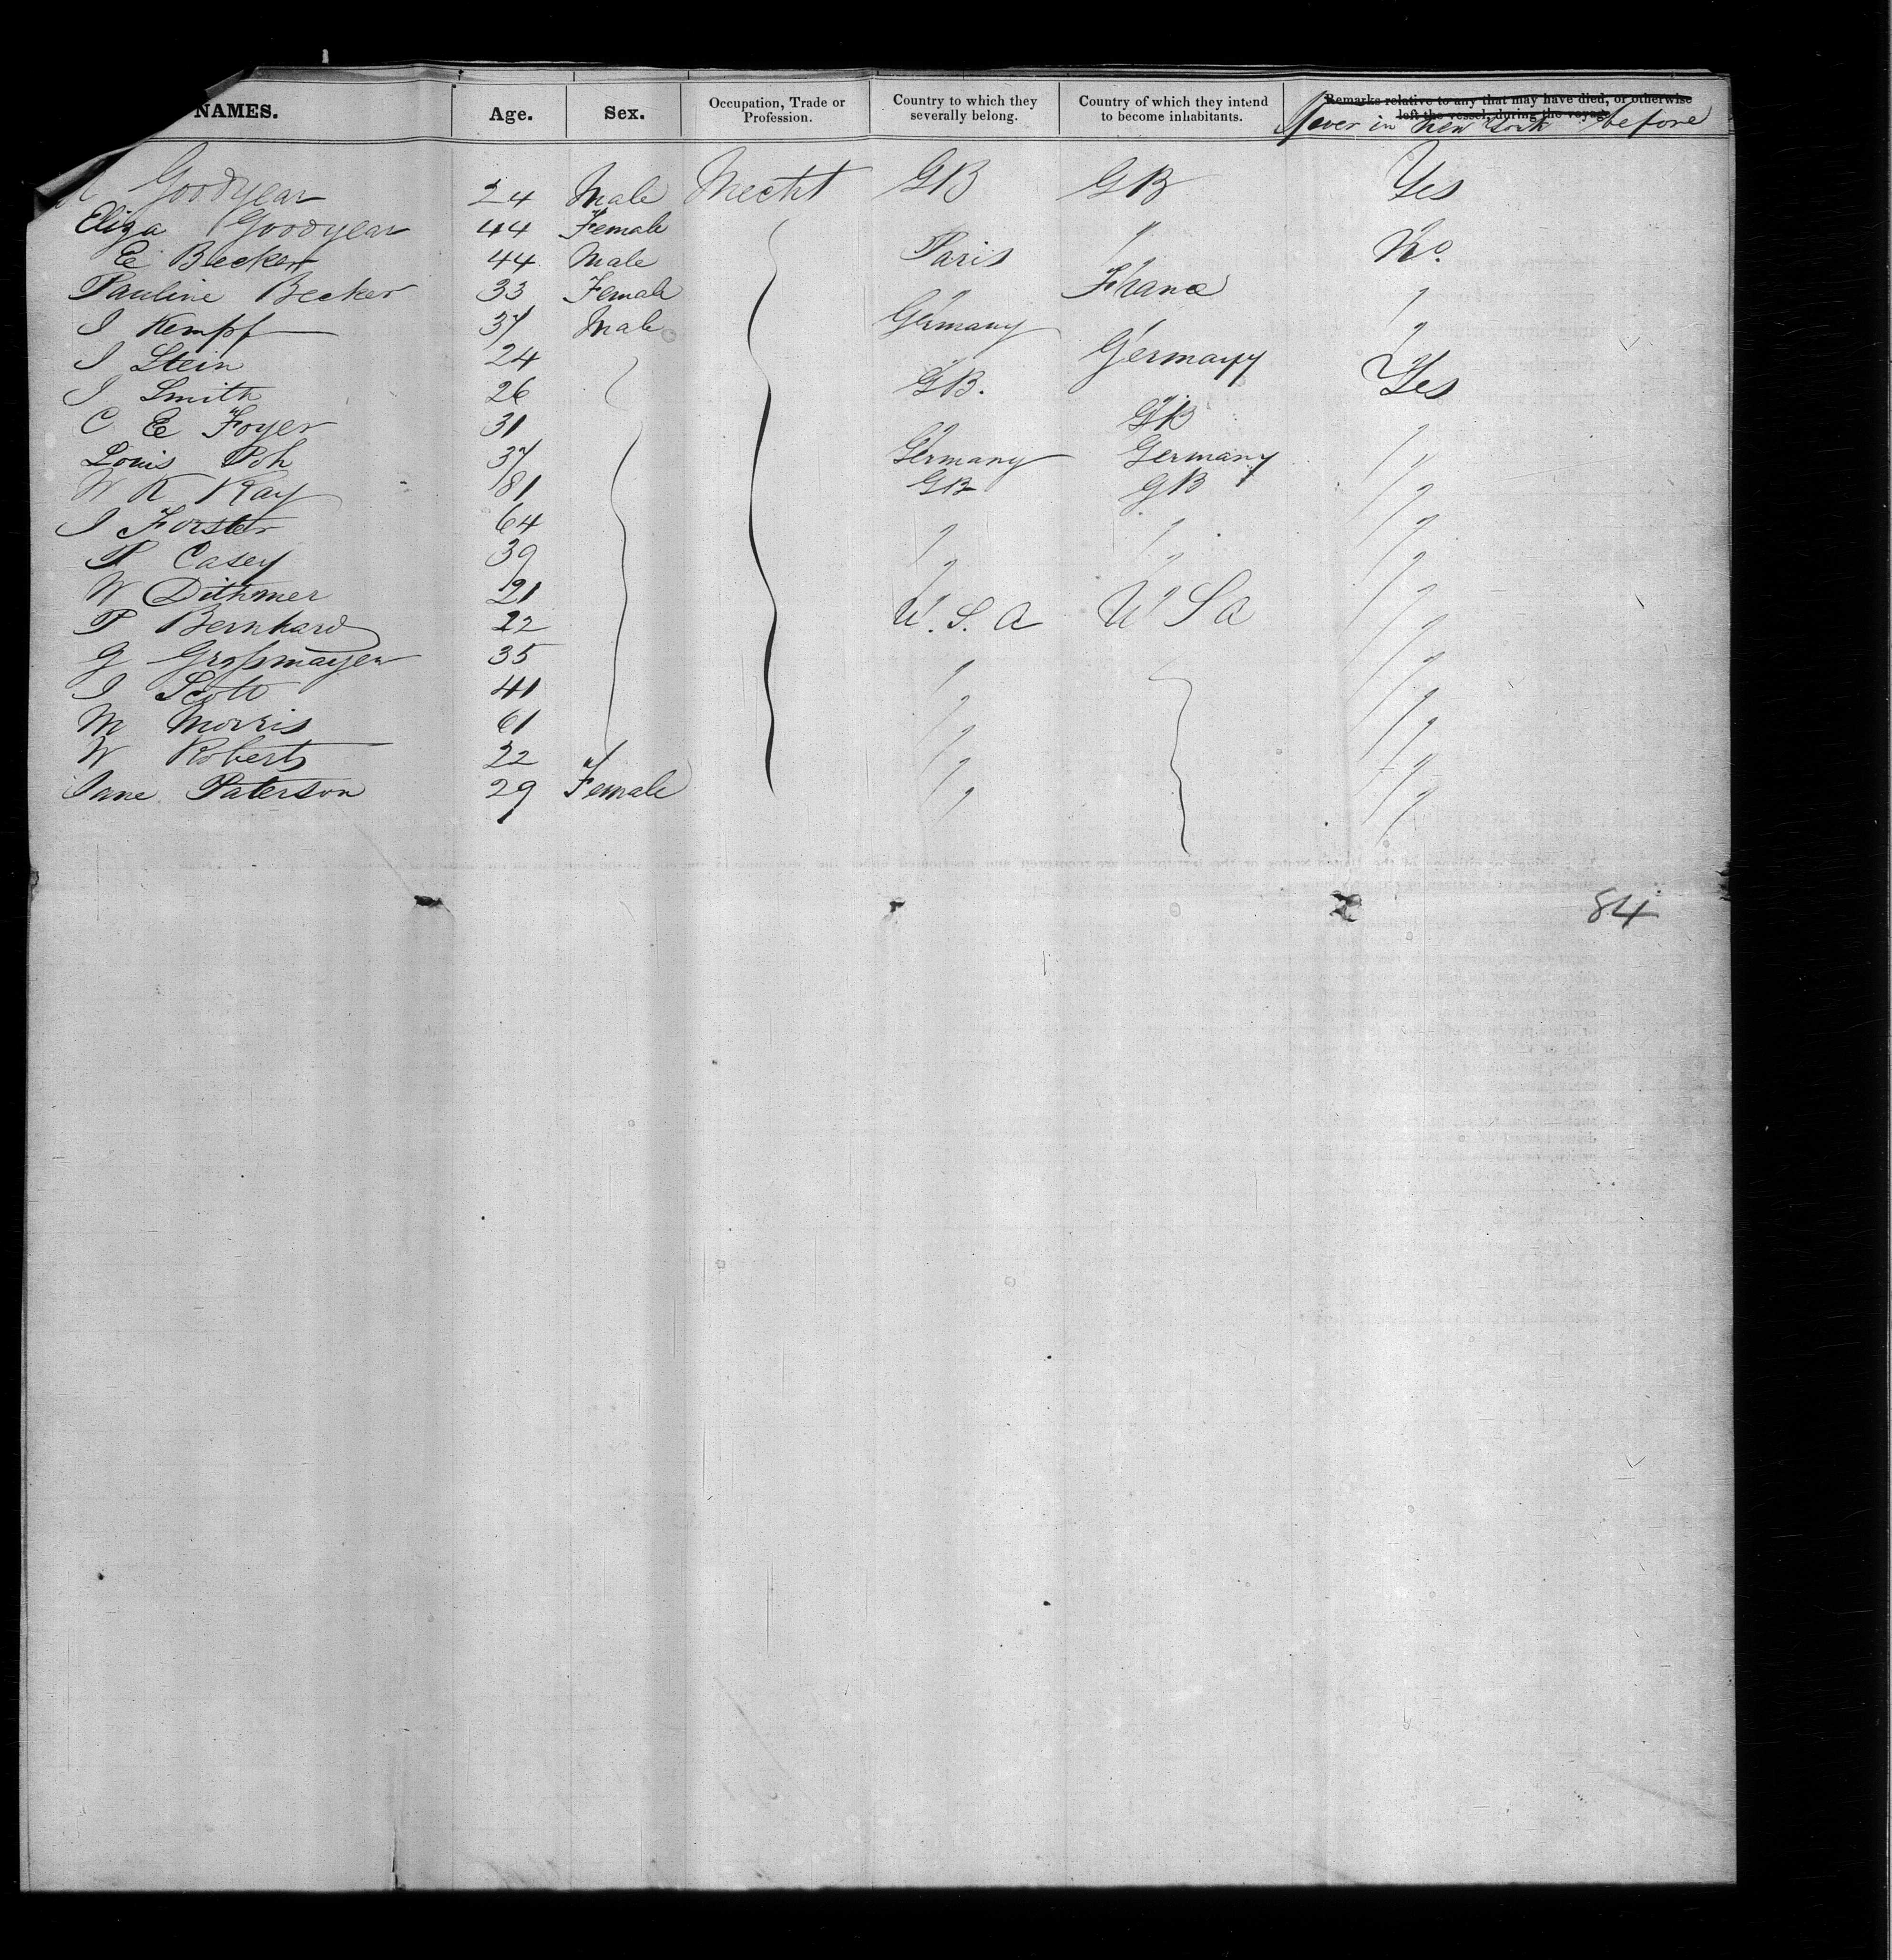 NAMES. Age. Sex. Occupation, Trade or Profession. Country to which they severally belong. Country of which they intend to become inhabitants. Remarks relative to any that may have died, or otherwise left the vessel, during the voyage
Never in New York before
Goodyear 24 Male Mecht GB GB Yes
Eliza Goodyear 44 Female " "
E Becker 44 Male Paris No.
Pauline Becker 33 Female " "
I Kempf 37 Male Germany "
I Stein 24 " Germany
I Smith 26 GB. Yes
C E Foyer 31 " GB "
Louis Poh 37 Germany Germany "
W K Kay GB GB "
I Forster 64 " " "
P Casey 39 " " "
W Dithmer 21 "
P Bernhard 22 U.S.A U S A "
G Großmayer 35 "
I Scott 41 " "
M Morris 61 " "
W Roberts 22 " "
Jane Paterson 29 Female " "
84